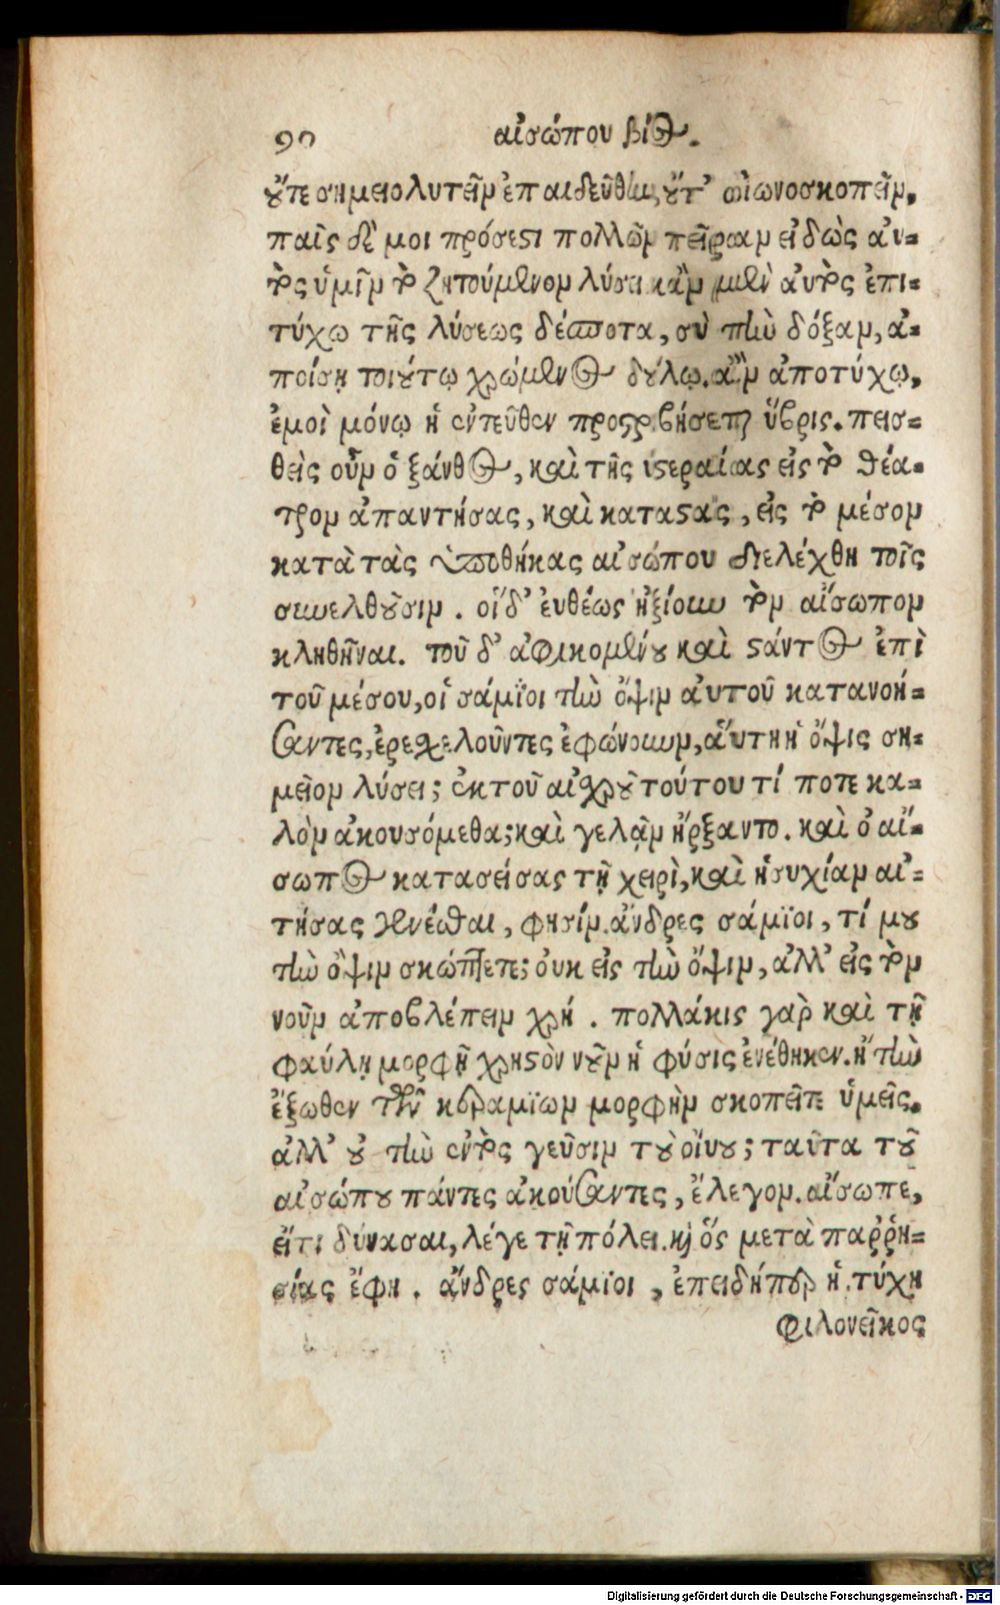 90 αἰσώπου βίος.
οὔτε σημειολυτεῖν ἐπαιδεύθην, οὔτ' οἰωνοσκοπεῖν,
παῖς δέ μοι πρόσεστι πολλῶν πεῖραν εἰδὼς αὐ-
τὸς ὑμῖν τὸ ζητούμενον λύσει κἂν μὲν αὐτὸς ἐπι-
τύχω τῆς λύσεως δέσποτα, σὺ τὴν δόξαν, ἀ-
ποίσῃ τοιούτῳ χρώμενος δούλῳ. ἂν ἀποτύχῳ,
ἐμοὶ μόνῳ ἡ ἐντεῦθεν προςτριβήσεται ὕβρις. πεισ-
θεὶς οὖν ὁ ξάνθος, καὶ τῆς ὑστεραίας εἰς τὸ θέα-
τρον ἀπαντήσας, καὶ καταστας, εἰς τὸ μέσον
κατὰ τὰς ὑποθήκας αἰσώπου διελέχθη τοῖς
συνελθοῦσιν. οἵ δ' ἐυθέως ἠξίουν τὸν αἴσωπον
κληθῆναι. τοῦ δ' ἀφικομένου καὶ στάντος ἐπὶ
τοῦ μέσου, οἱ σάμϊοι τὴν ὄψιν ἀυτοῦ κατανοή-
σαντες, ἐρεσχελοῦντες ἐφώνουν, ἁύτη ἡ ὄψις ση-
μεῖον λύσει; ἐκ τοῦ αἰσχροῦ τούτου τί ποτε κα-
λὸν ἀκουσόμεθα; καὶ γελᾷν ἤρξαντο. καὶ ὁ αἴ-
σωπος κατασείσας τῇ χειρὶ, καὶ ἡσυχίαν αἰ-
τήσας γενέσθαι, φησίν. ἄνδρες σάμϊοι, τί μου
τὴν ὄψιν σκώπτετε; ὀυκ εἰς τὴν ὄψιν, ἀλλ' εἰς τὸν
νοῦν ἀποβλέπειν χρή. πολλάκις γὰρ καὶ τῇ
φαύλῃ μορφῇ χρηστὸν νοῦν ἡ φύσις ἐνέθηκεν. ἢ τὴν
ἔξωθεν τῶν κεραμίων μορφὴν σκοπεῖτε ὑμεῖς.
ἀλλ' οὐ τὴν ἐντὸς γεῦσιν τοὺ οἴνου; ταῦτα τοῦ
αἰσώπου πάντες ἀκούσαντες, ἔλεγον. αἴσωπε,
εἴτι δύνασαι, λέγε τῇ πόλει. καὶ ὅς μετὰ παῤῥη-
σίας ἔφη. ἄνδρες σάμϊοι, ἐπειδήπερ ἡ τύχη
φιλονεῖκος
Digitalisierung gefördert durch die Deutsche Forschungsgemeinschaft - DFG